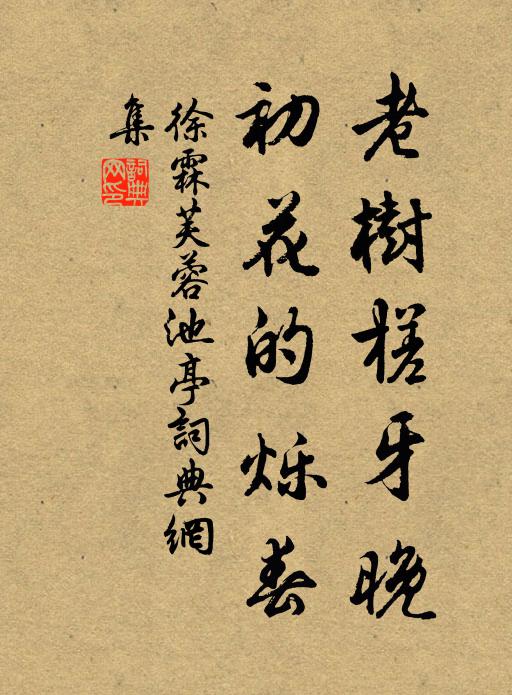 老樹槎牙晚
初花的烁春
徐霖芙蓉池亭詞典網
集
詞典
网印